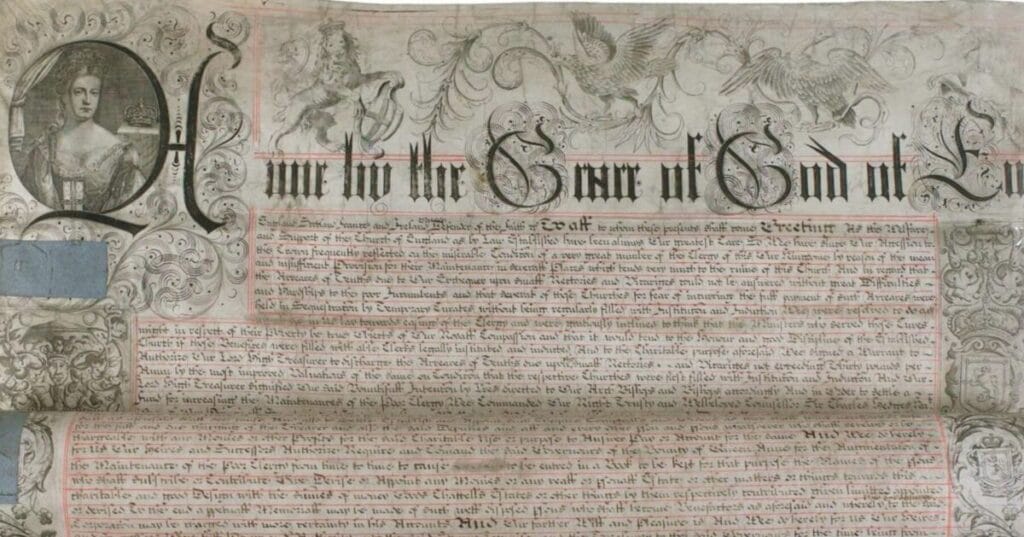 Anne by the Grace of God of En
England Scotland France and Ireland Defender of the Faith &c To all to whom these presents shall come Greeting As the Welfare
and Support of the Church of England as by Law Established have been always Our greatest Care So We have since Our Accession to
the Crown frequently reflected on the miserable Condition of a very great number of the Clergy of this Our Kingdome by reason of the mean
and insufficient Provision for their Maintenance in severall Places which tends very much to the ruine of this Church And in regard that
the Arreares of Tenths due to Our Exchequer upon small Rectories and Vicarages could not be answered without great Difficulties
and Hardships to the poor Incumbents and that severall of those Churches for fear of incurring the full payment of such Arreares were
held in Sequestration by Temporary Curates without being regularly filled with Institution and Induction Wee were resolved to do
towards easing of the Clergy and were graciously inclined to think that Ministers who served those Cures
might in respect of their Poverty be the Objects of Our Royall Compassion and that it would tend to the Honour and good Discipline of the Established
Church if those Benefices were filled with Clerks legally instituted and inducted And to the Charitable purpose aforesaid Wee signed a Warrant to
Authorize Our Lord High Treasurer to discharge the Arreares of Tenths due upon small Rectories and Vicarages not exceeding Thirty pounds per
Annum by the most improved Valuations of the same on Condition that the respective Churches were first filled with Institution and Induction And Our
Lord High Treasurer signified Our said Bountifull Intention by Letters directed to Our Arch Bishops and Bishops accordingly And in Order to settle a
Fund for increasing the Maintenances of the Poor Clergy Wee Commanded Our Right Trusty and Welbeloved Counsellor Sir Charles Hedges
chargeable with any Monies or other Profits for the said Charitable Use or purpose to Answer Pay or Account for the same And Wee do hereby
for Us Our Heires and Successors Authorize Require and Command the said Governours of the Bounty of Queen Anne for the Augmentation of
the Maintenance of the Poor Clergy from time to time to cause to be entred in a Book to be kept for that purpose the Names of all the persons
who shall subscribe or Contribute Give Devise or Appoint any Monies or any reall or personall Estate or other matters or things towards this
charitable and good Design with the summes of money Goods Chattells Estates or other things by them respectively contributed given appointed
or devised To the end a perpetuall Memoriall may be made of such well disposed persons who shall become Benefactors as aforesaid and whereby the said
Corporation may be charged with more certainty in his Accounts And Our further Will and Pleasure is And Wee do hereby for Us Our Heires